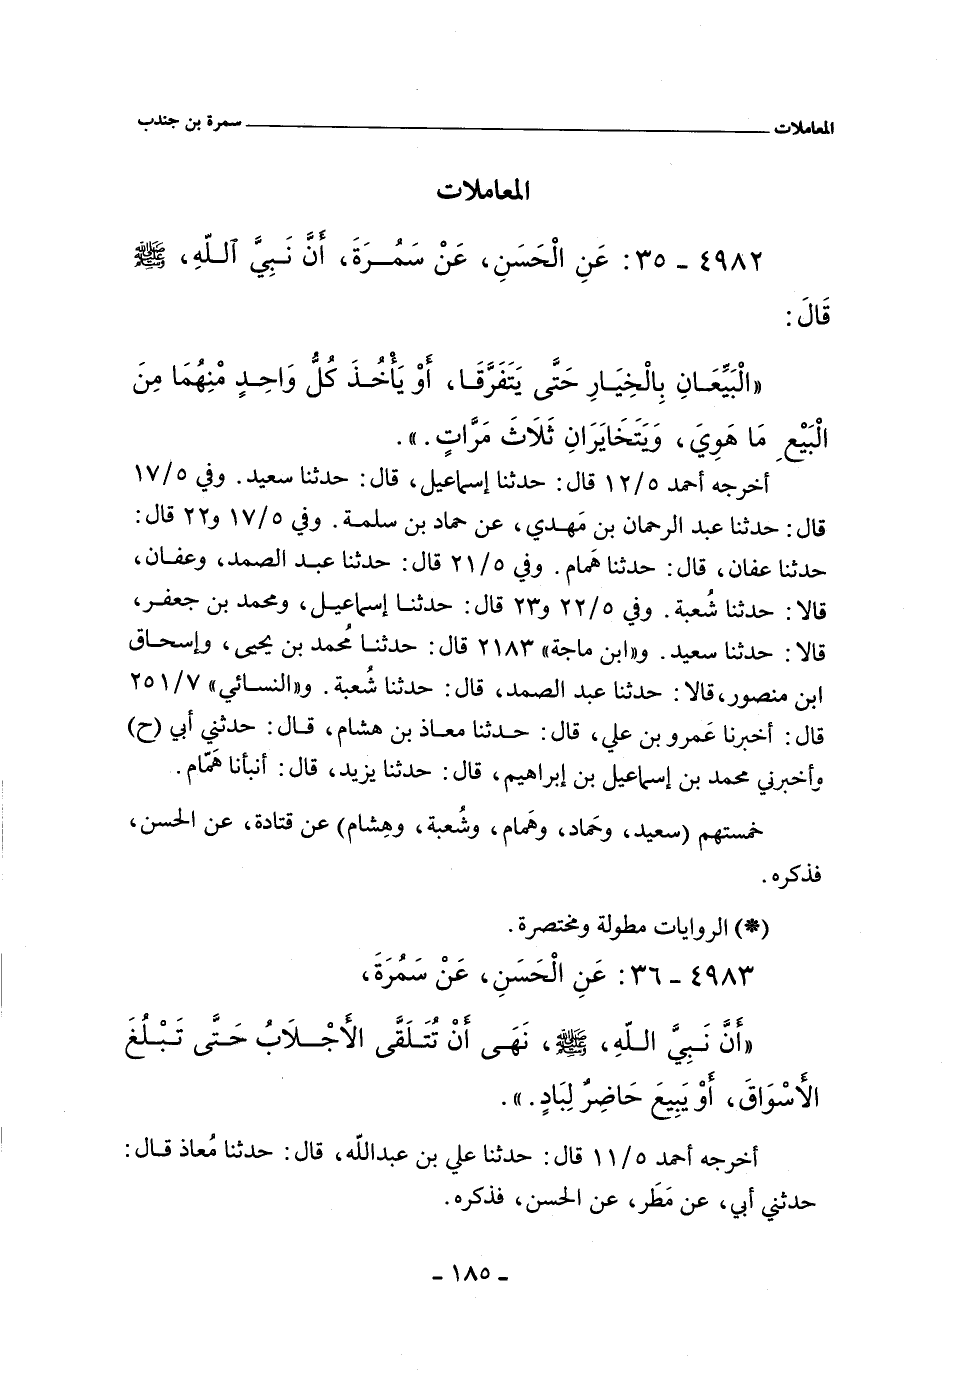 المعاملات ــــــــــ سمرة بن جندب
المعاملات
٤٩٨٢ ـ ٣٥: عَنِ الْحَسَنِ، عَنْ سَمُرَةَ، أَنَّ نَبِيَّ ٱللّهِ، ﷺ
قَالَ:
«الْبَيِّعَانِ بِالْخِيَارِ حَتَّى يَتَفَرَّقَا، أَوْ يَأْخُذَ كُلُّ وَاحِدٍ مْنِهُمَا مِنَ
الْبَيْعِ مَا هَوِيَ، وَيَتَخَايَرَانِ ثَلَاثَ مَرَّاتٍ.».
أخرجه أحمد ١٢/٥ قال: حدثنا إسماعيل، قال: حدثنا سعيد. وفي ١٧/٥
قال: حدثنا عبد الرحمان بن مَهدي، عن حماد بن سلمة. وفي ١٧/٥ و٢٢ قال:
حدثنا عفان، قال: حدثنا هَمام. وفي ٢١/٥ قال: حدثنا عبد الصمد، وعفان،
قالا: حدثنا شُعبة. وفي ٢٢/٥ و٢٣ قال: حدثنا إسماعيل، ومحمد بن جعفر،
قالا: حدثنا سعيد. و«ابن ماجة» ٢١٨٣ قال: حدثنا مُحمد بن يحيى، وإسحاق
ابن منصور، قالا: حدثنا عبد الصمد، قال: حدثنا شُعبة. و«النسائي» ٢٥١/٧
قال: أخبرنا عَمرو بن علي، قال: حدثنا معاذ بن هشام، قال: حدثني أبي (ح)
وأخبرني محمد بن إسماعيل بن إبراهيم، قال: حدثنا يزيد، قال: أنبأنا هَمّام.
خمستهم (سعيد، وحَماد، وهَمام، وشُعبة، وهِشام) عن قتادة، عن الحسن،
فذكره.
(*) الروايات مطولة ومختصرة.
٤٩٨٣ ـ ٣٦: عَنِ الْحَسَنِ، عَنْ سَمُرَةَ،
«أَنَّ نَبِيَّ اللّهِ، ﷺ، نَهَى أَنْ تُتَلَقَّى الأَجْلَابُ حَتَّى تَبْلُغَ
الأَسْوَاقَ، أَوْ يَبِيعَ حَاضِرٌ لِبَادٍ.».
أخرجه أحمد ١١/٥ قال: حدثنا علي بن عبدالله، قال: حدثنا مُعاذ قال:
حدثني أبي، عن مَطَر، عن الحسن، فذكره.
ـ ١٨٥ ـ